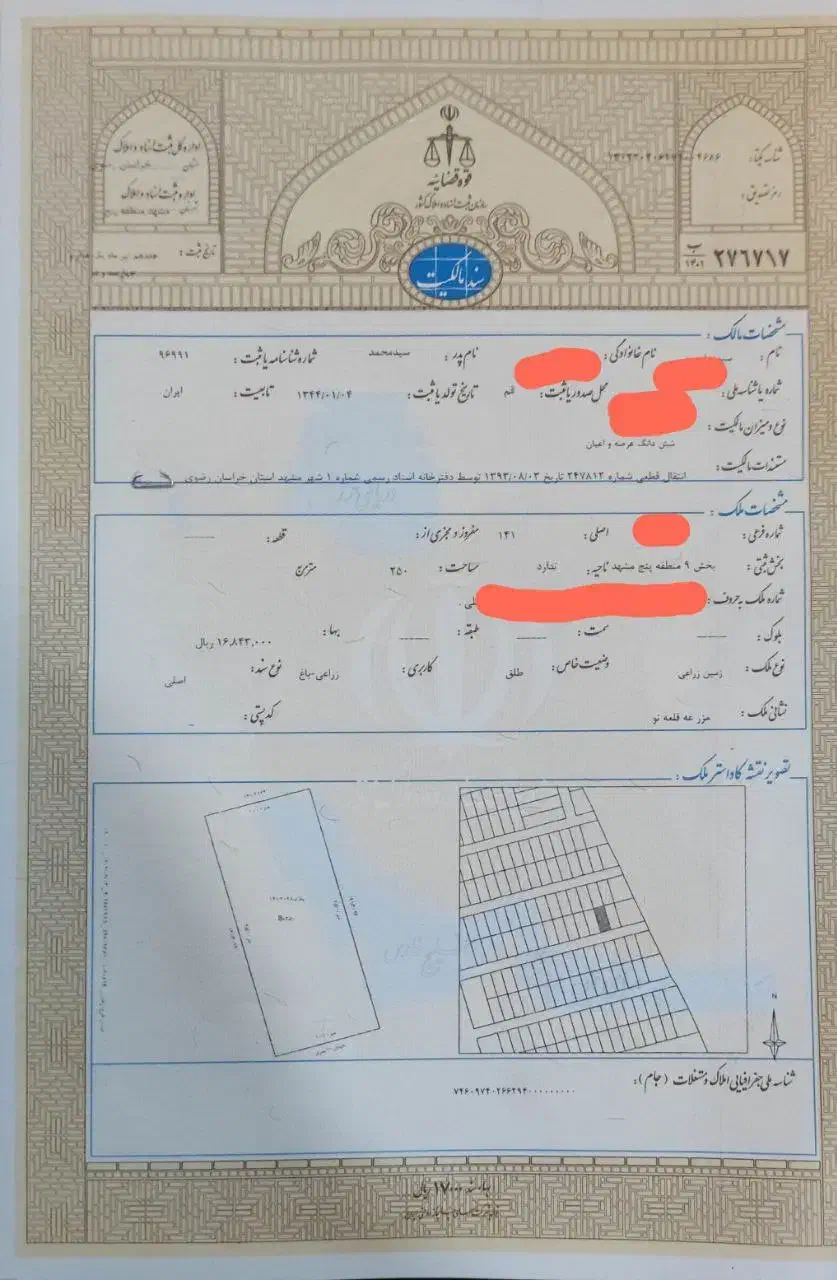 قوه قضائیه
سازمان ثبت اسناد و املاک کشور
اداره کل ثبت اسناد و املاک
استان خراسان رضوی
اداره ثبت اسناد و املاک
شناسه یکتا:
رمز تصدیق:
تاریخ ثبت:
۲۷۶۷۱۷ ب ۱۴۰۲
سند مالکیت
مشخصات مالک:
نام: نام خانوادگی: نام پدر: سیدمحمد شماره شناسنامه یا ثبت: ۹۶۹۹۱
شماره یا شناسه ملی: محل صدور یا ثبت: قم تاریخ تولد یا ثبت: ۱۳۴۴/۰۱/۰۴ تابعیت: ایران
نوع و میزان مالکیت:
شش دانگ عرصه و اعیان
مستندات مالکیت:
انتقال قطعی شماره ۲۴۷۸۱۲ تاریخ ۱۳۹۳/۰۸/۰۳ توسط دفترخانه اسناد رسمی شماره ۱ شهر مشهد استان خراسان رضوی
مشخصات ملک:
شماره فرعی: اصلی: ۱۴۱ مفروز و مجزی از: قطعه:
بخش ثبتی: بخش ۹ منطقه پنج مشهد ناحیه: ندارد مساحت: ۲۵۰ مترمربع
شماره ملک به حروف:
بلوک: سمت: طبقه: بها: ۱۶،۸۴۳،۰۰۰ ریال
نوع ملک: زمین زراعی وضعیت خاص: طلق کاربری: زراعی-باغ نوع سند: اصلی
نشانی ملک: مزرعه قلعه نو کد پستی:
تصویر نقشه کاداستر ملک:
N
شناسه ملی جغرافیایی املاک و مستغلات (جام):
بهاء سند ۱۷۰۰۰ ریال